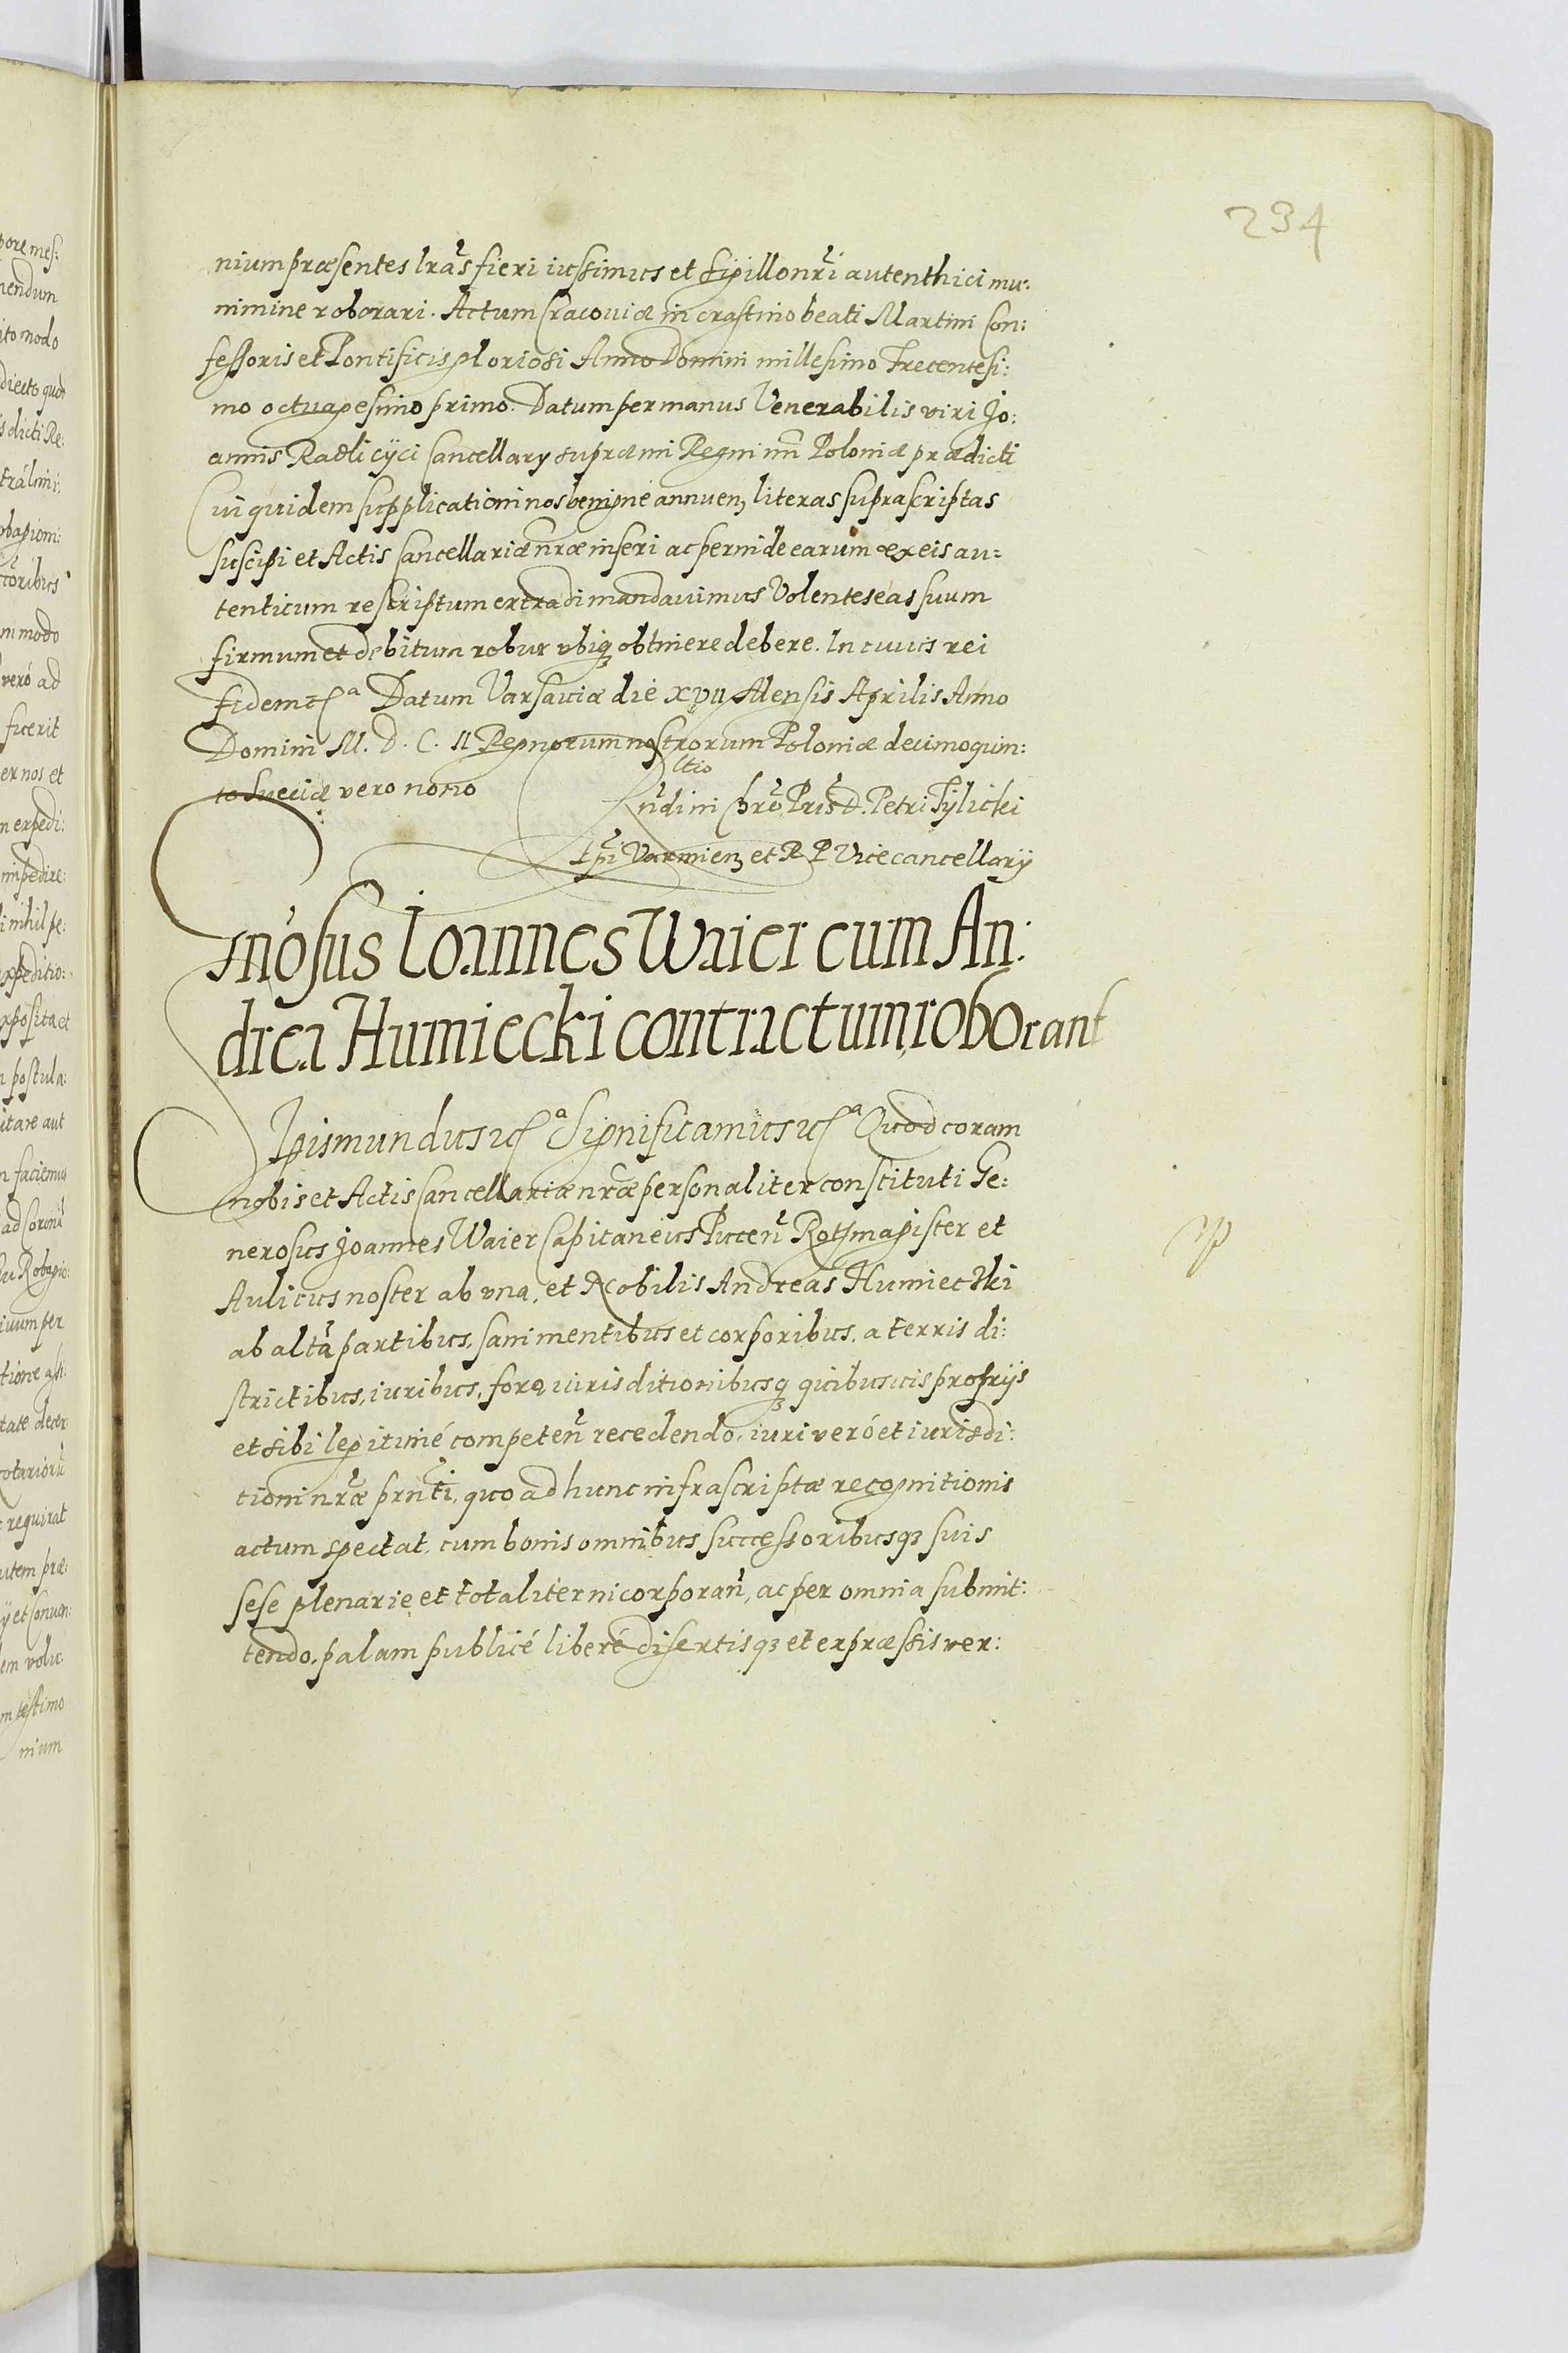 234
nium præsentes lrãs fieri iussimus et sigillo nr̃i autenthici mu:
nimine roborari. Actum Cracoviæ in crastino beati Martini Con:
fessoris et Pontificis gloriosi Anno Domini millesimo Trecentesi:
mo octuagesimo primo. Datum per manus Venerabilis viri Jo:
annis Radlicÿci Cancellary supræmi Regni nr̃i Poloniæ prædicti
Cui quidem supplicationi nos benigne annuen̨ literas suprascriptas
suscipi et Actis Cancellariæ nræ inseri ac perinde earum ex eis au=
tenticum rescriptum extradi mandavimus Volentes eas suum
firmum et debitum robur vbiq; obtinere debere. In cuius rei
fidem etcª Datum Varsaviæ die XVII Mensis Aprilis Anno
Domini M. D. C. II Regnorum nostrorum Poloniæ decimo quin:
to Sveciæ vero nono
Rltio
Rñdi in Chrõ Pris D. Petri Tÿlicki
Epĩ Varmien̨ et R P Vicecancellarÿ
Gñosus Joannes Waier cum An:
drea Humiecki contractum roborant
Sigismundus etcª Significamus etcª Quod coram
nobis et Actis Cancellariæ nræ personaliter constituti Ge:
nerosus Joannes Waier Capitaneus Puceñ Rotsmagister et
Aulicus noster ab vna, et Nobilis Andreas Humieczki
ab altã partibus, sani mentibus et corporibus, a terris di:
strictibus, iuribus, foro iurisditionibusq; quibusuis proprÿs
et sibi legitimé competeñ recedendo, iuri veró et iurisdi:
tioni nræ prñti, quo ad hunc infrascriptæ recognitionis
actum spectat, cum bonis omnibus successoribusq; suis
sese plenarie et totaliter incorporañ, ac per omnia submit:
tendo, palam publicé liberé disertisq; et expræssis ver: